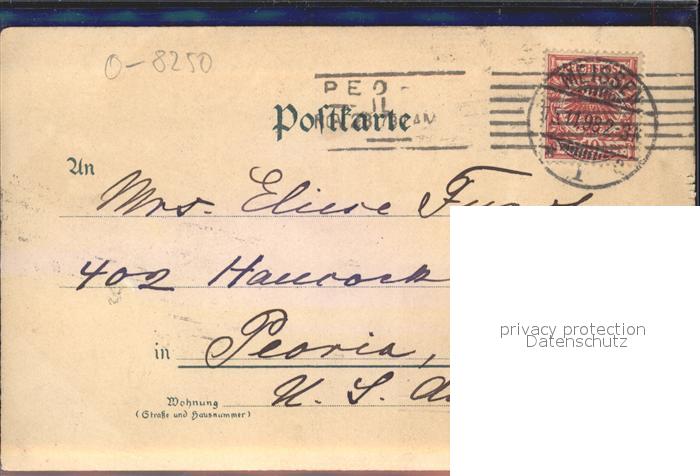 O-8250
PEO-
ILL
Postkarte
MEISSEN
1
An
Mrs. Eliese
402 Hancock
in Peoria,
U. S. A.
Wohnung
(Straße und Hausnummer)
privacy protection
Datenschutz